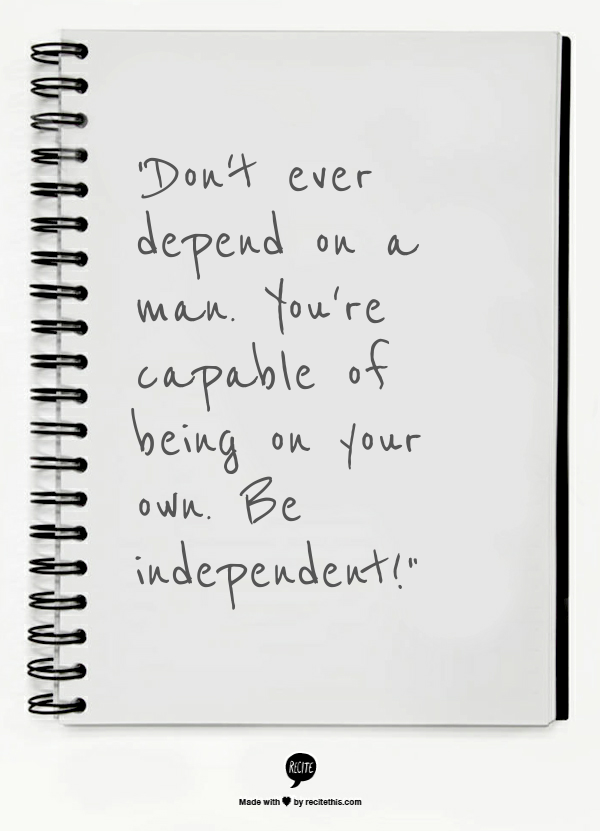 "Don't ever
depend on a
man. You're
capable of
being on your
own. Be
independent!"
RECITE
Made with ♥ by recitethis.com